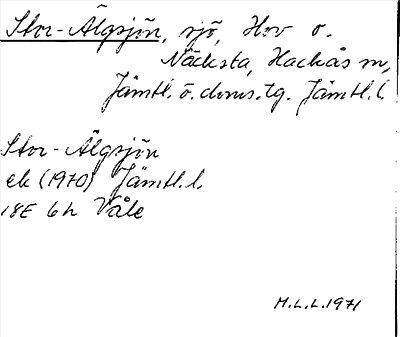 Stor-Älgsjön, sjö, Hov o.
Näcksta, Hackås sn,
Jämtl. ö. doms.tg. Jämtl. l.
Stor-Älgsjön
ek (1970) Jämtl. l.
18E 6h Våle
H.L.L. 1971